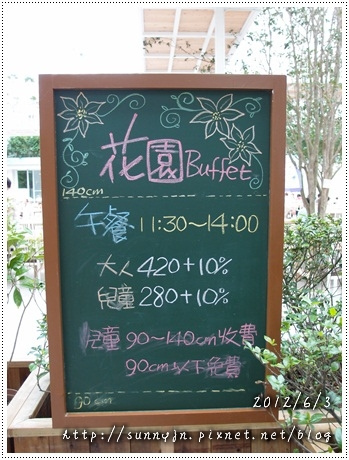 花園Buffet
140cm
午餐 11:30~14:00
大人 420+10%
兒童 280+10%
兒童 90~140cm收費
90cm以下免費
90cm
2012/6/3
http://sunnyjn.pixnet.net/blog